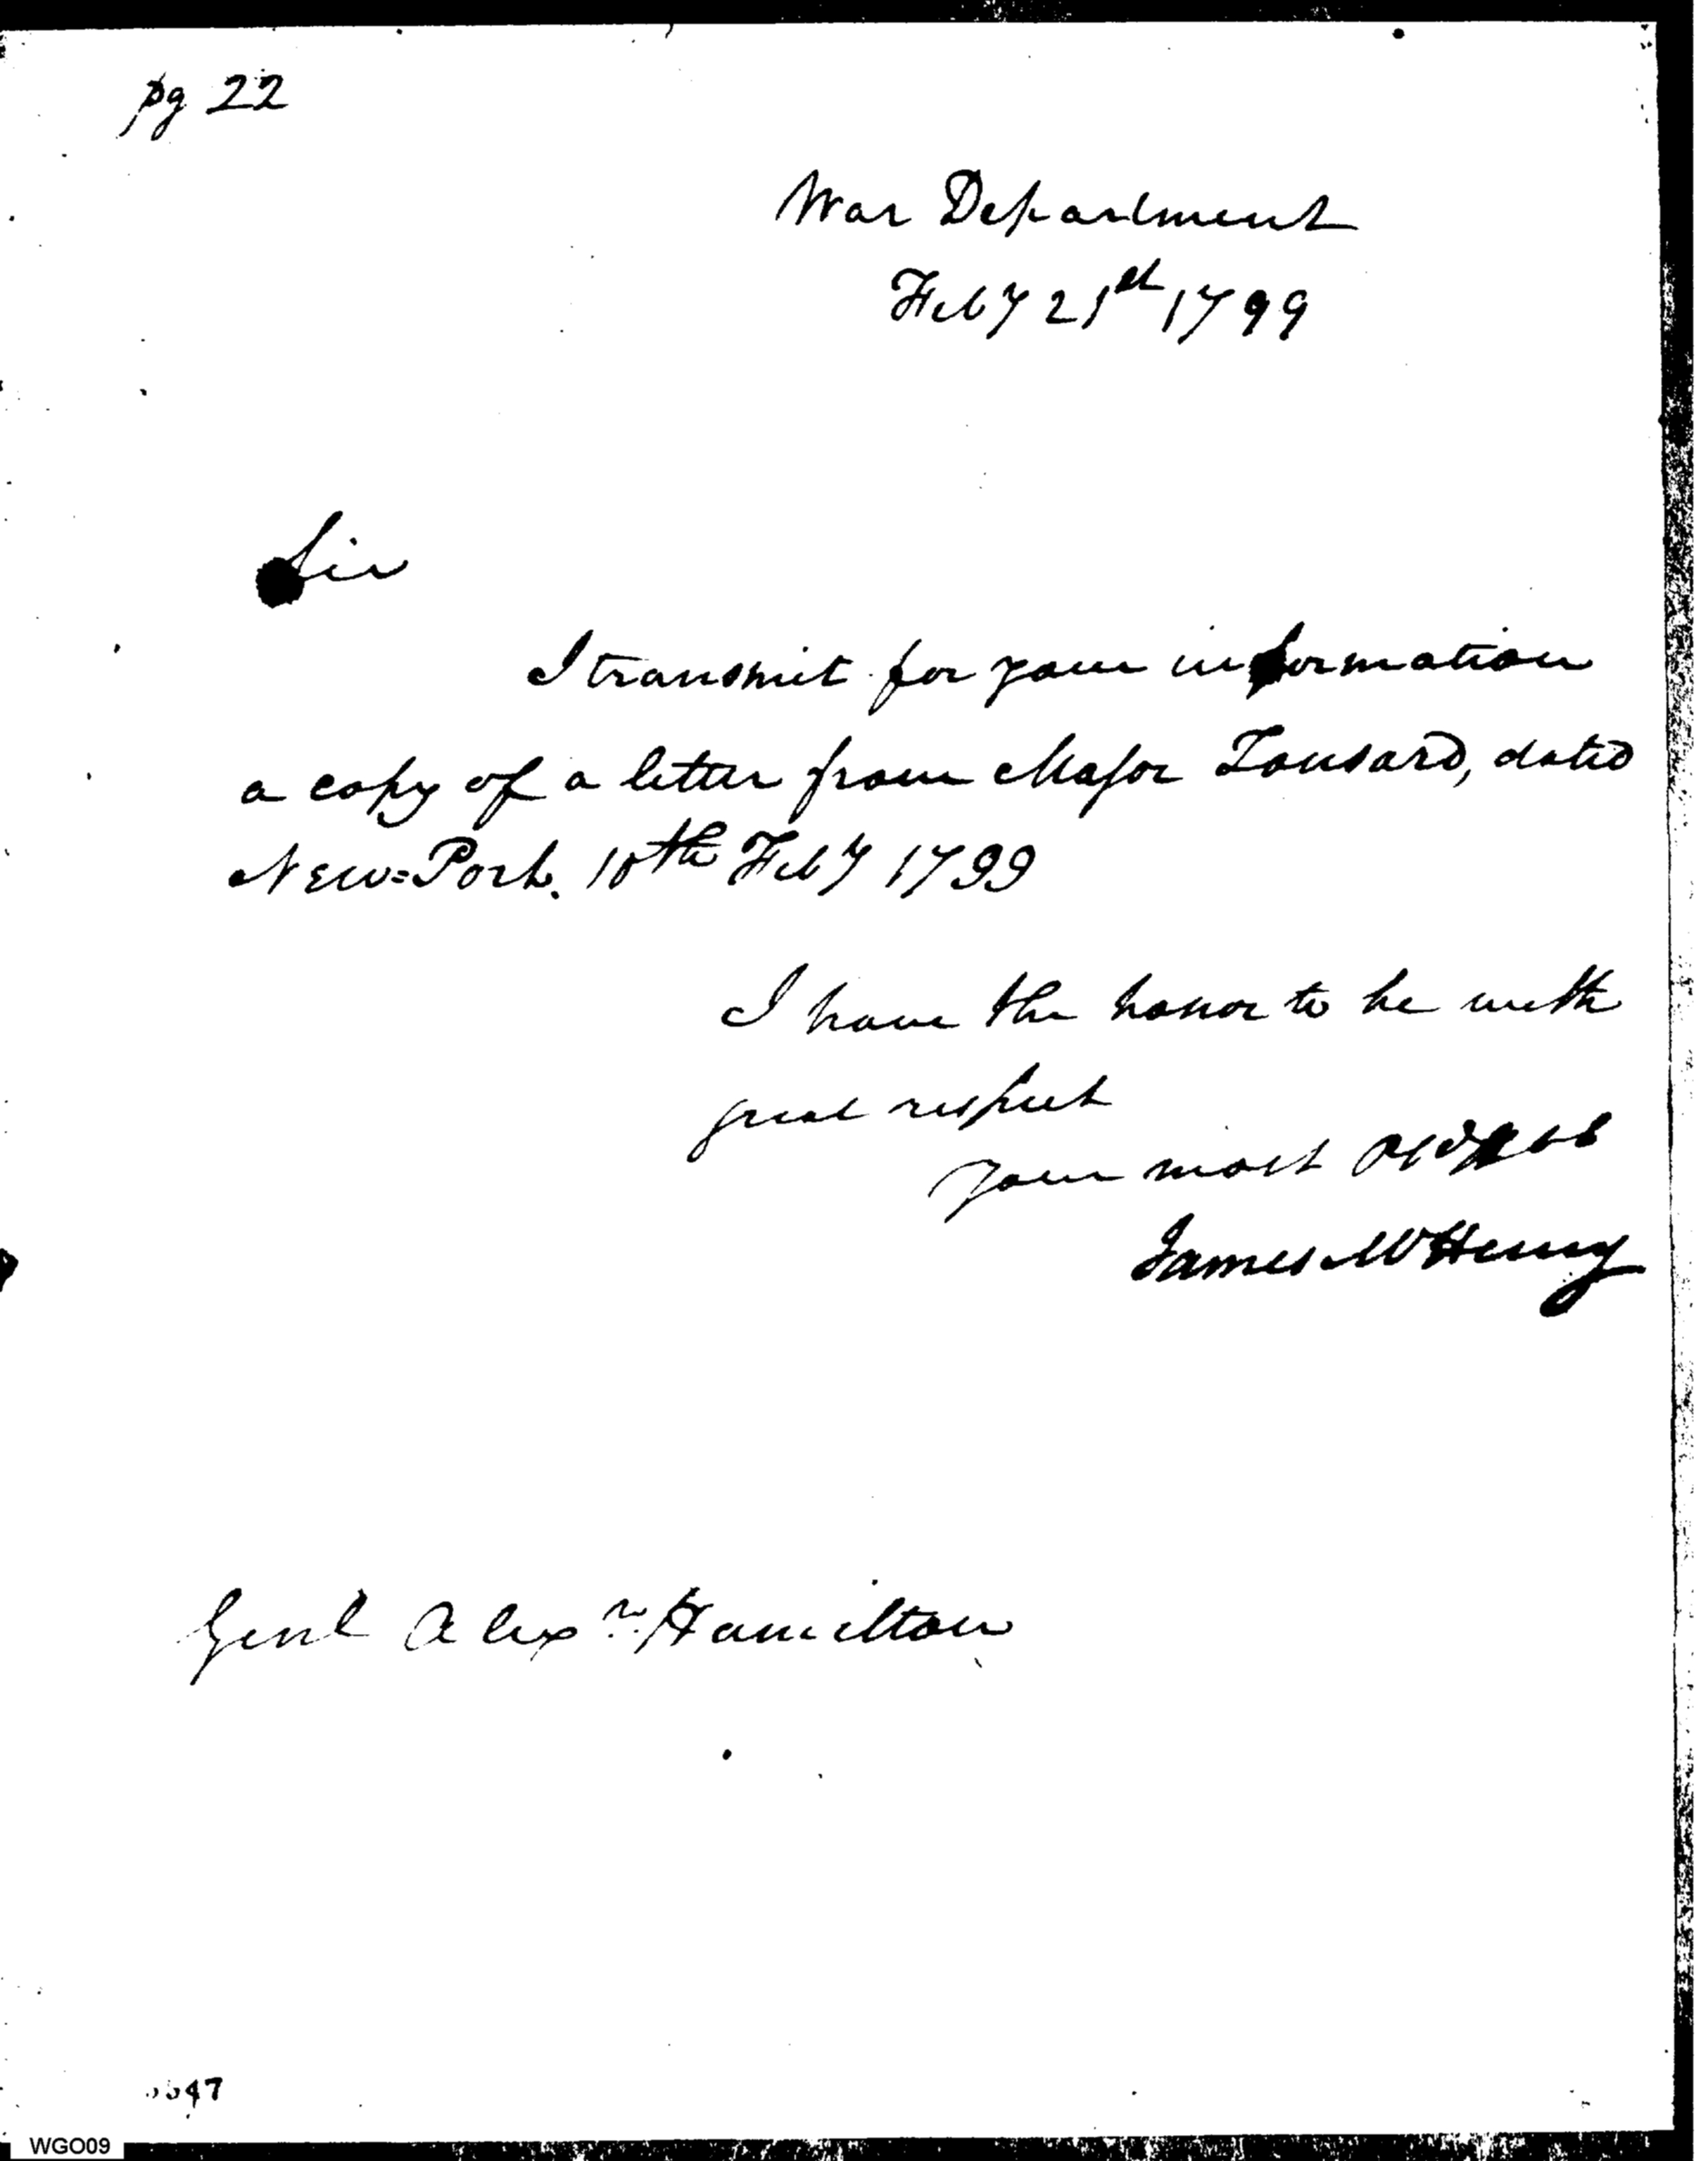 pg 22
War Department
Feby 21st 1799
Sir
I transmit for your information
a copy of a letter from Major Tousard, dated
New=Port. 10th Feby 1799
I have the honor to be with
great respect
your most
James McHenry
Genl Alexr Hamilton
47
WGO09